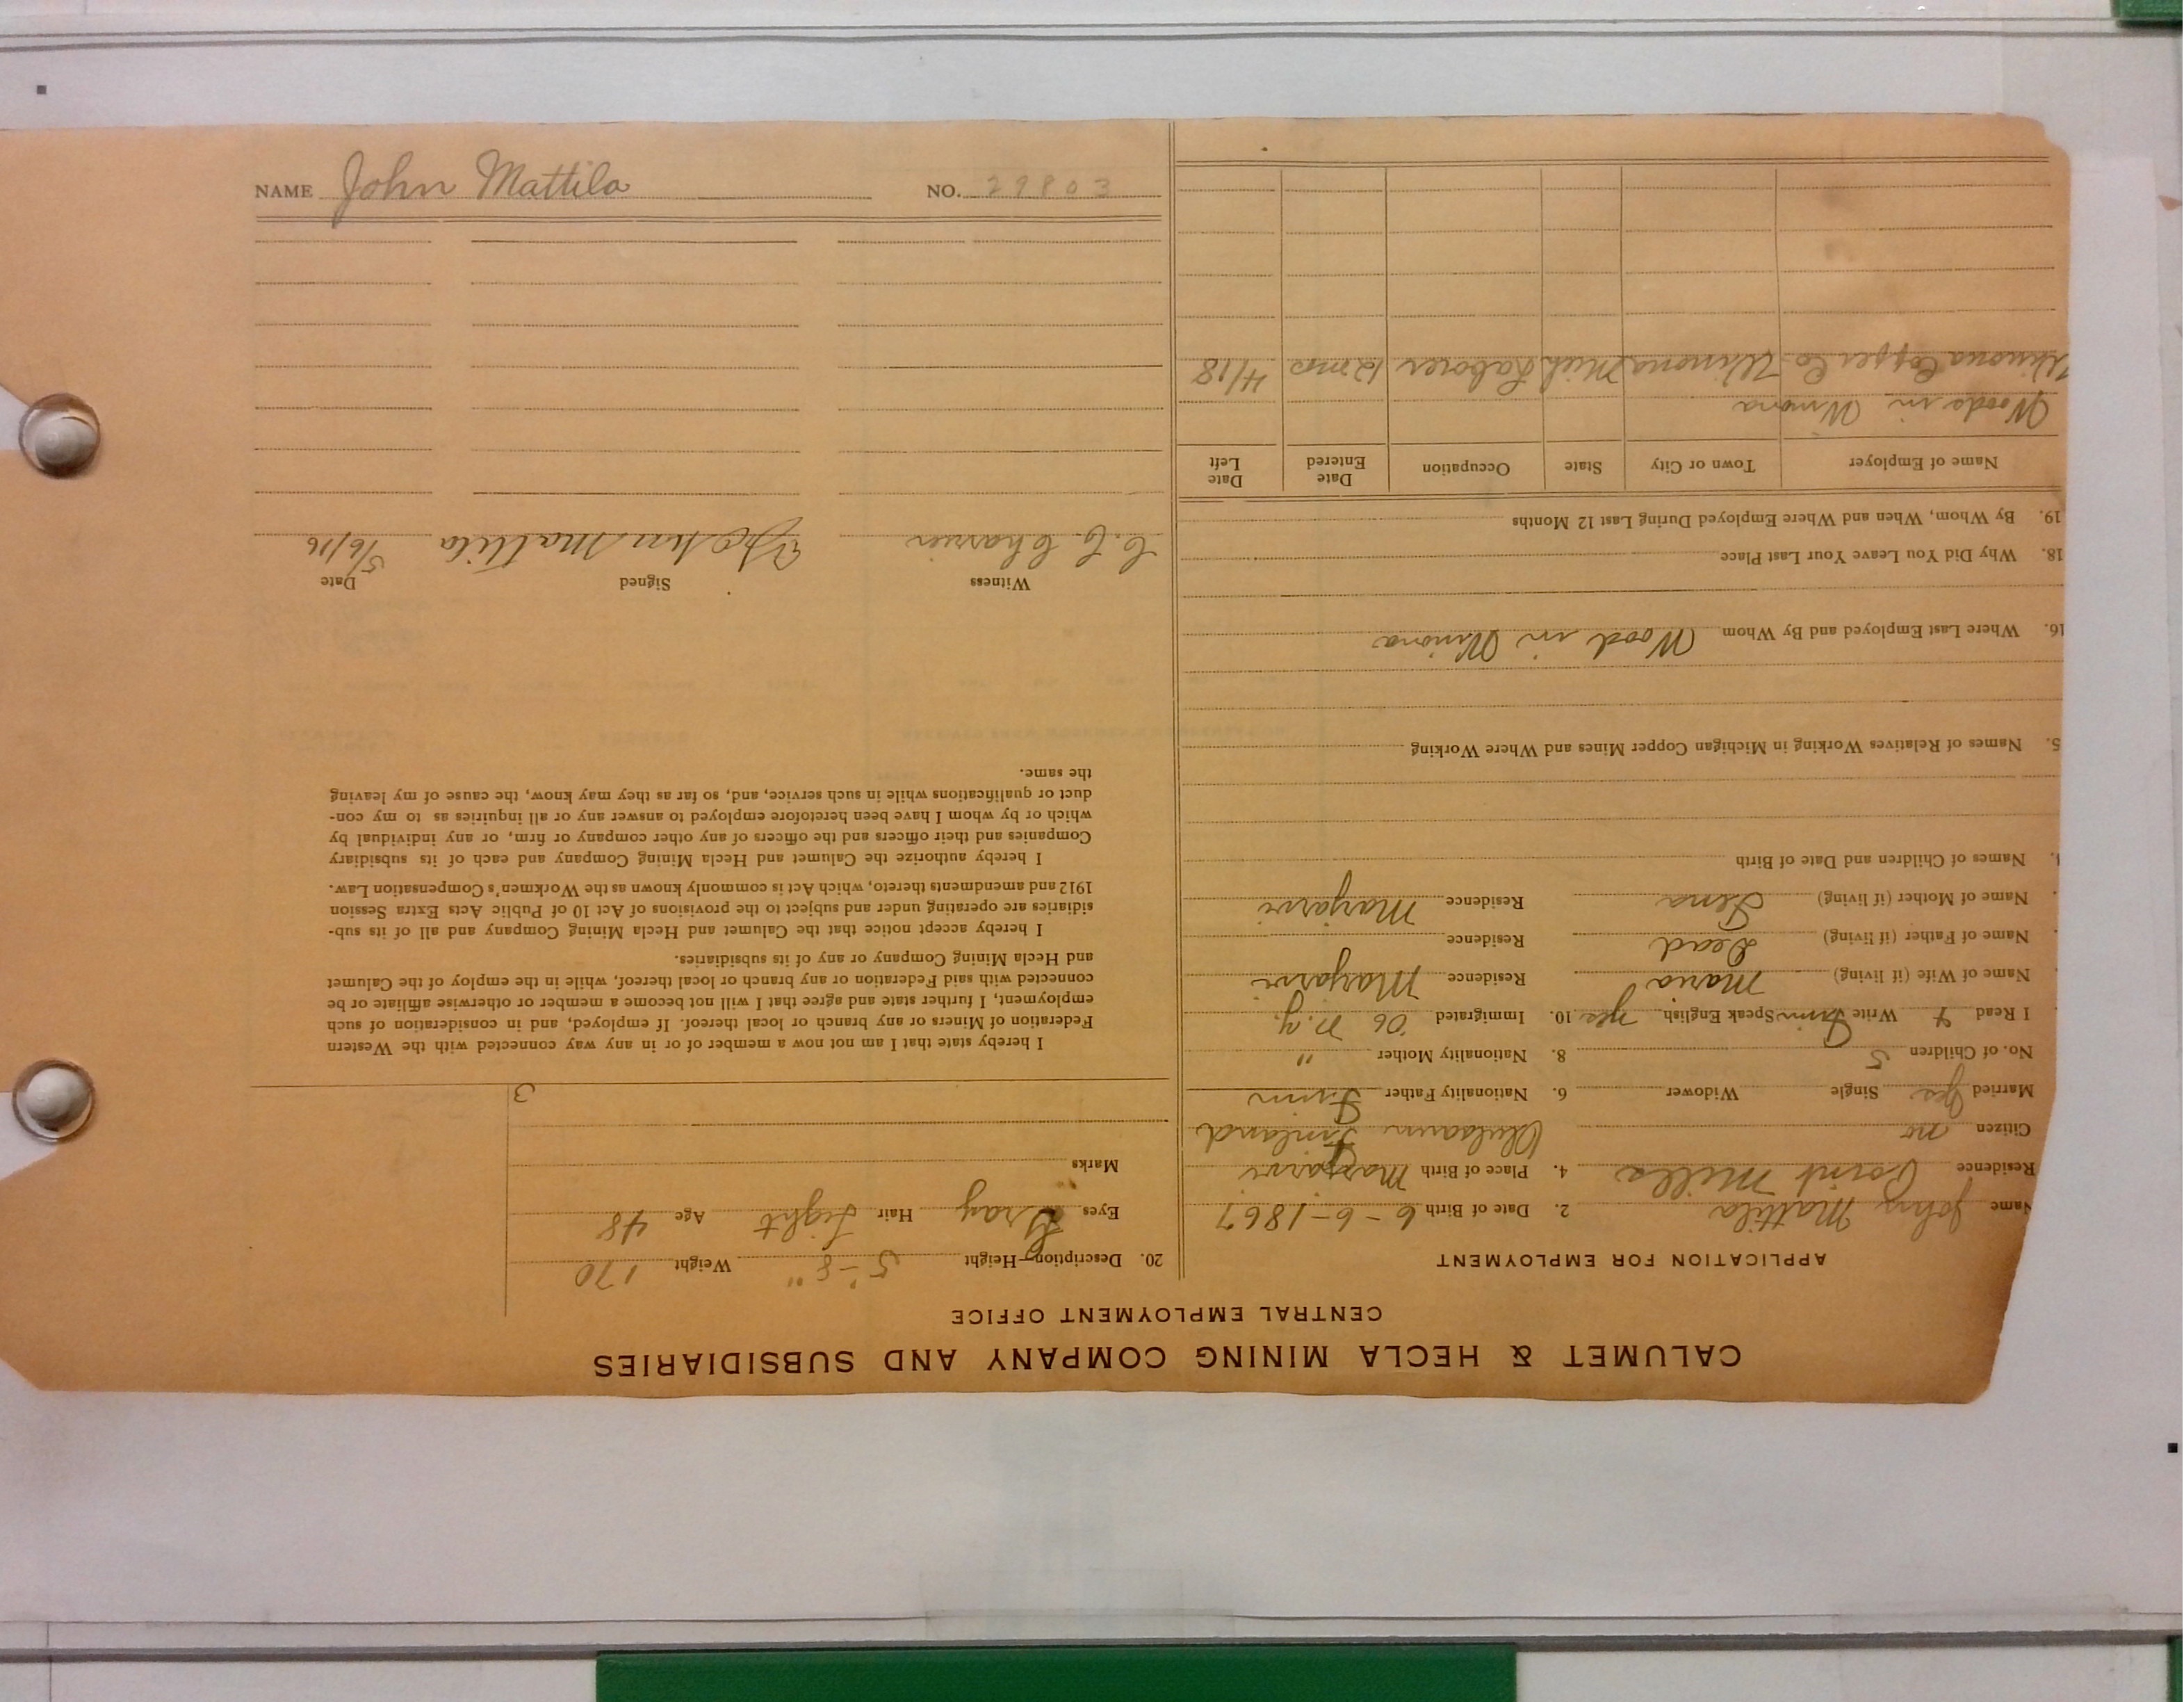 CALUMET & HECLA MINING COMPANY AND SUBSIDIARIES
CENTRAL EMPLOYMENT OFFICE
APPLICATION FOR EMPLOYMENT
Name John Mattila 2. Date of Birth 6-6-1867
Residence Point Mills 4. Place of Birth Marjarvi
Citizen no Finland
Married yes Single Widower 6. Nationality Father Finn
No. of Children 5 8. Nationality Mother "
I Read Write Finn Speak English yes 10. Immigrated 06 N.Y.
Name of Wife (if living) Maria Residence Marjarvi
Name of Father (if living) Dead Residence
Name of Mother (if living) Lena Residence Marjarvi
Names of Children and Date of Birth
5. Names of Relatives Working in Michigan Copper Mines and Where Working
16. Where Last Employed and By Whom Wood in Winona
18. Why Did You Leave Your Last Place
19. By Whom, When and Where Employed During Last 12 Months
Name of Employer Town or City State Occupation Date Entered Date Left
Woods in Winona
Winona Copper Co Winona Mich Laborer 12 mos 4/18
20. Description—Height 5'-8" Weight 170
Eyes Gray Hair Light Age 48
Marks
3
I hereby state that I am not now a member of or in any way connected with the Western
Federation of Miners or any branch or local thereof. If employed, and in consideration of such
employment, I further state and agree that I will not become a member or otherwise affiliate or be
connected with said Federation or any branch or local thereof, while in the employ of the Calumet
and Hecla Mining Company or any of its subsidiaries.
I hereby accept notice that the Calumet and Hecla Mining Company and all of its sub-
sidiaries are operating under and subject to the provisions of Act 10 of Public Acts Extra Session
1912 and amendments thereto, which Act is commonly known as the Workmen's Compensation Law.
I hereby authorize the Calumet and Hecla Mining Company and each of its subsidiary
Companies and their officers and the officers of any other company or firm, or any individual by
which or by whom I have been heretofore employed to answer any or all inquiries as to my con-
duct or qualifications while in such service, and, so far as they may know, the cause of my leaving
the same.
Witness Signed Date
John Mattila 5/6/16
NAME John Mattila NO. 29803